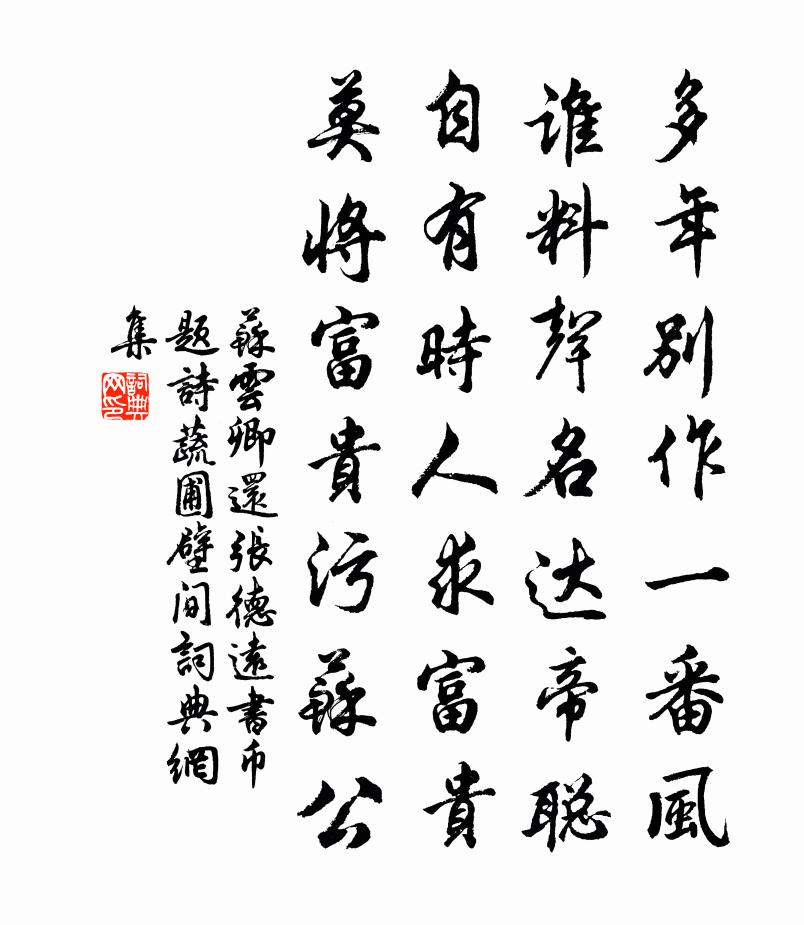 多年別作一番風
誰料聲名达帝聪
自有時人求富貴
莫將富貴污蘇公
蘇雲卿還張德遠書币
题詩蔬圃壁间詞典網
集
詞典网印